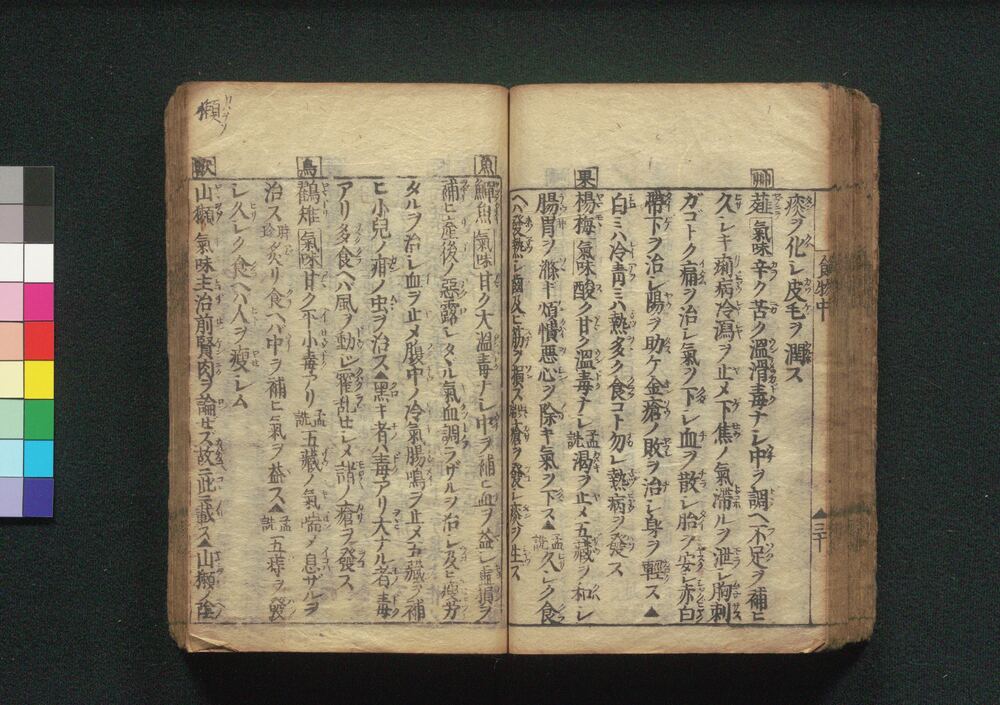 食物中
痰ヲ化シ皮毛ヲ潤ス
艸
薤 氣味 辛ク苦ク溫滑毒ナシ中ヲ調ヘ不足ヲ補ヒ
久シキ痢病冷瀉ヲ止メ下焦ノ氣滯ルヲ泄シ胸刺
ガコトク痛ヲ治シ氣ヲ下シ血ヲ散シ胎ヲ安シ赤白
帶下ヲ治シ陽ヲ助ケ金瘡ノ敗ヲ治シ身ヲ輕ス▲
白ミハ冷青ミハ熱多ク食コト勿レ熱病ヲ發ス
果
楊梅 氣味 酸ク甘ク溫毒ナシ孟詵渴ヲ止メ五藏ヲ和シ
腸胃ヲ滌キ煩憒惡心ヲ除キ氣ヲ下ス▲孟詵久シク食
ヘハ發熱シ齒及ヒ筋ヲ損ス瘡ヲ發シ痰ヲ生ス
▲三十
魚
鱓魚 氣味 甘ク大溫毒ナシ中ヲ補ヒ血ヲ益シ虛損ヲ
補ヒ產後ノ惡露シタタル氣血調ラザルヲ治シ及ヒ瘦労
タルヲ治シ血ヲ止メ腹中ノ冷氣腸鳴ヲ止メ五藏ヲ補
ヒ小兒ノ疳ノ虫ヲ治ス▲黑キ者ハ毒アリ大ナル者毒
アリ多食ヘハ風ヲ動シ霍乱セシメ諸ノ瘡ヲ發ス
鳥
鷭雉 氣味 甘ク平小毒アリ孟詵五藏ノ氣喘メ息ザルヲ
治ス炙リ食ヘバ中ヲ補ヒ氣ヲ益ス▲孟詵五痔ヲ發
シ久シク食ヘハ人ヲ瘦シム
獸
山獺 氣味主治前賢肉ヲ論セス故ニ此ニ載ス▲山獺ノ陰
獺
カハヲソ